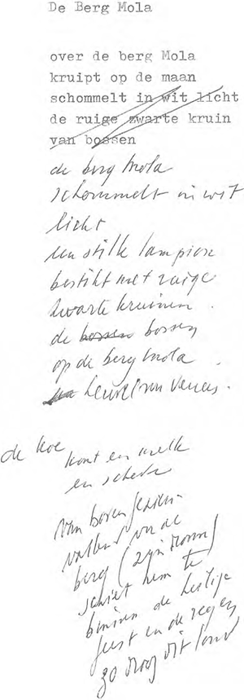 De Berg Mola
over de berg Mola
kruipt op de maan
schommelt in wit licht
de ruige zwarte kruin
van bossen
de berg Mola
schommelt in wit
licht
een stille lampion
bestikt met ruige
zwarte kruinen.
de bossen bossen
op de berg Mola
heuvel van Venus.
de koe komt en melk
en scheve
van boven
vallend van de
berg (zijn droom)
schiet hem te
binnen de heilige
geest en de regen
zo droog dit land